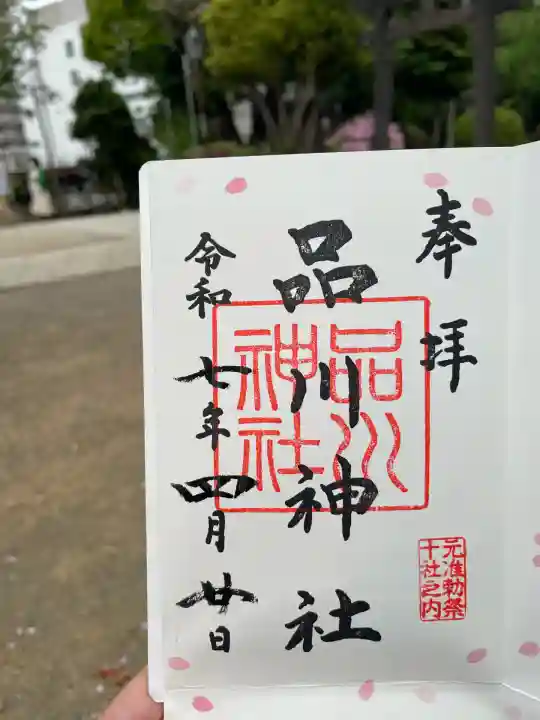 奉拝
品川神社
品川
神社
元准勅祭
十社之内
令和七年四月廿日